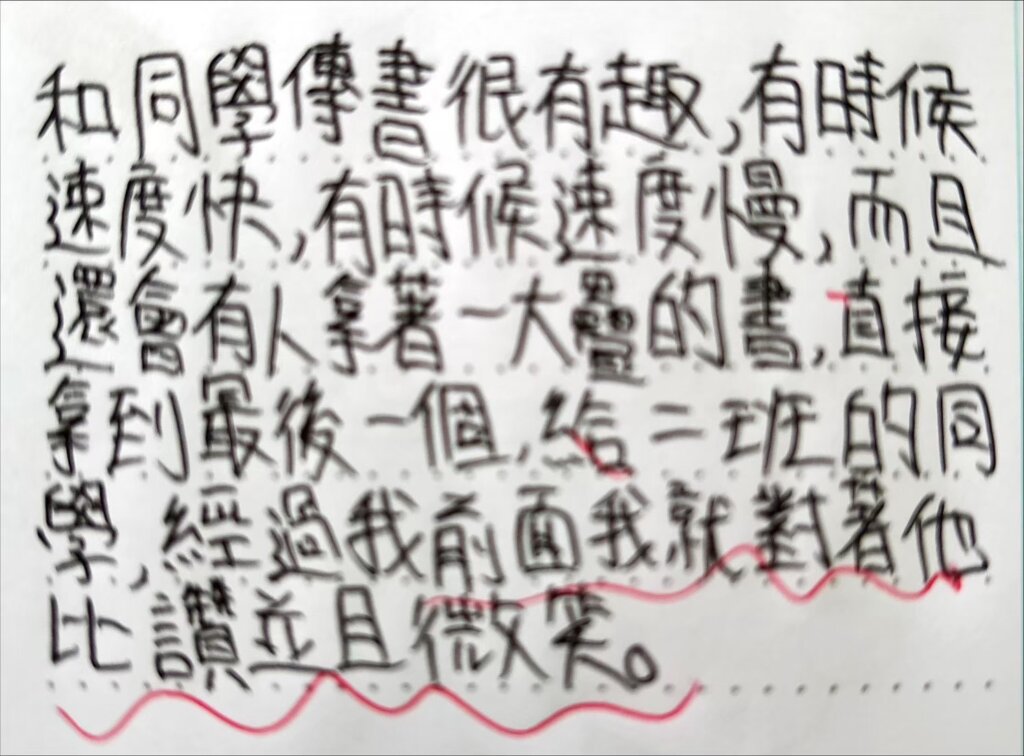 和同學傳書很有趣,有時候
速度快,有時候速度慢,而且
還會有人拿著一大疊的書,直接
拿到最後一個,給二班的同
學,經過我前面我就對著他
比讚並且微笑。